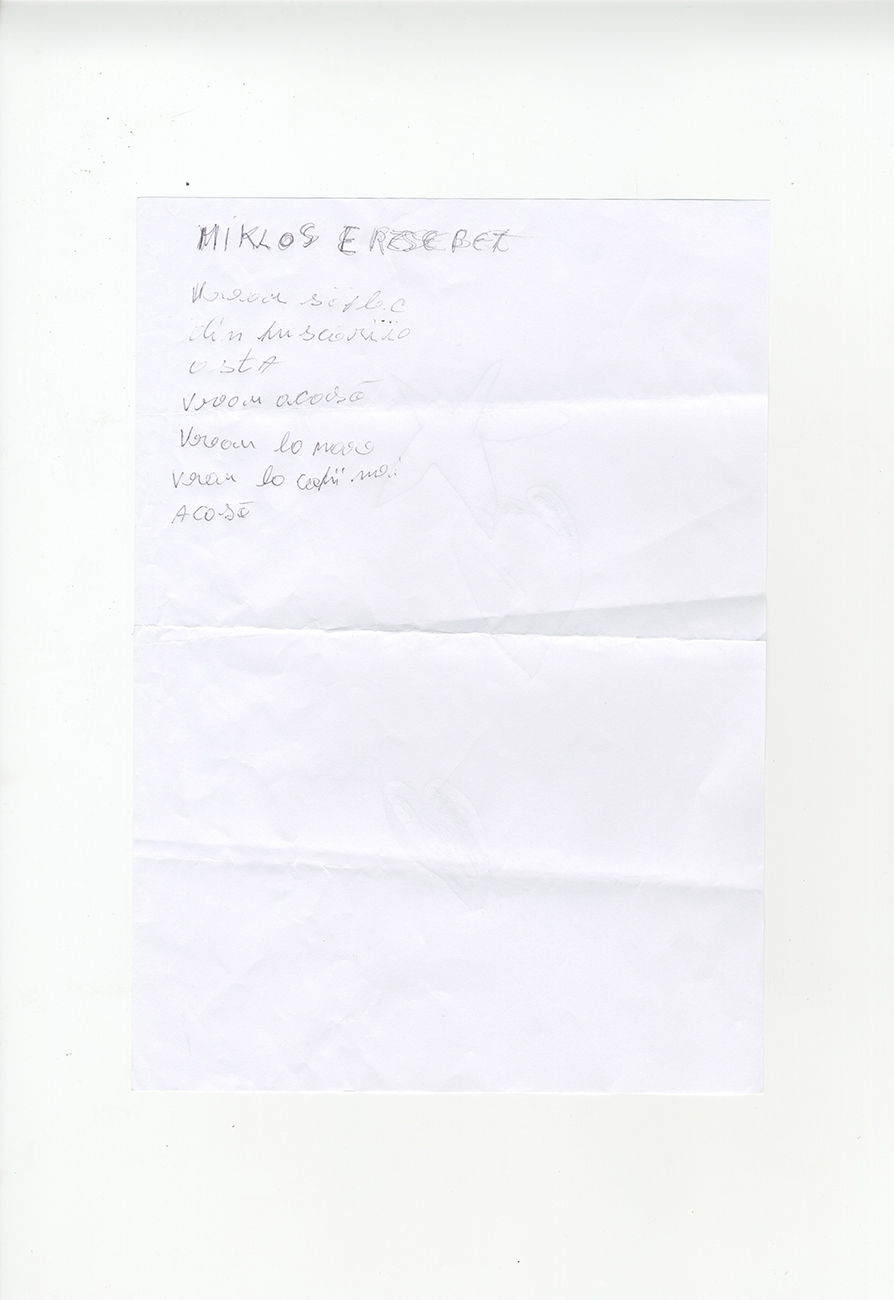 MIKLOS ERZSEBET
Vreau să plec
din
asta
Vreau acasă
Vreau la mare
vrau la copii mei
ACASĂ